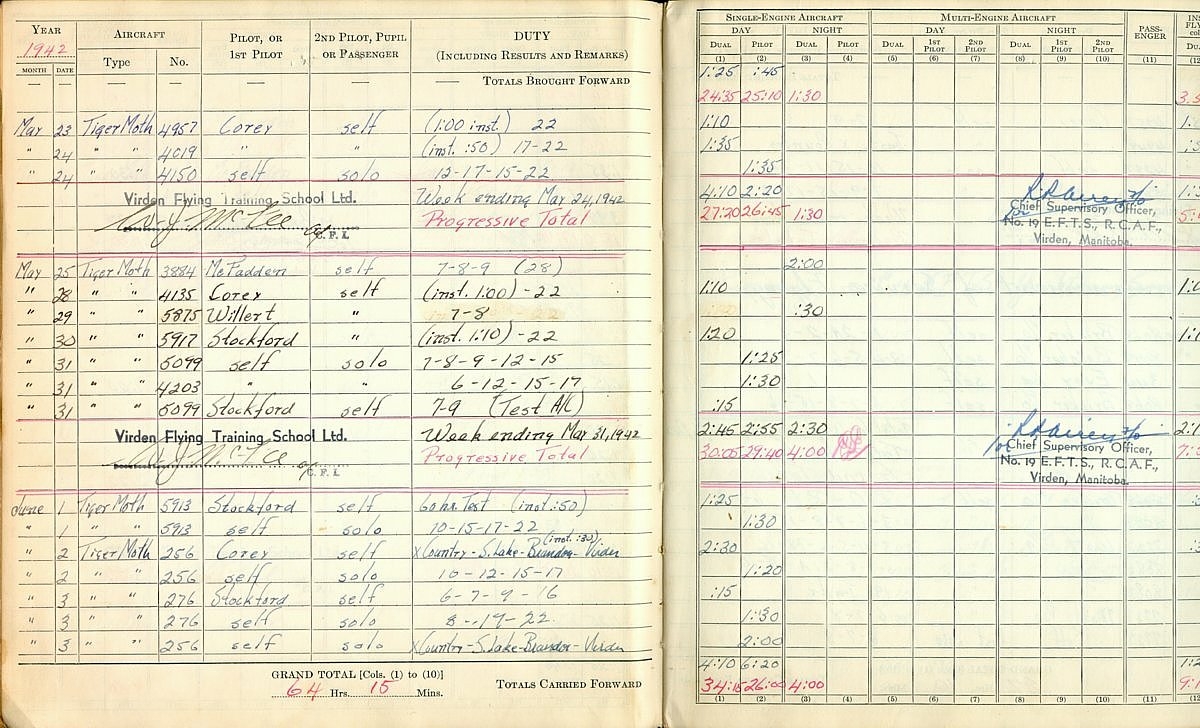 YEAR AIRCRAFT PILOT, OR 1ST PILOT 2ND PILOT, PUPIL OR PASSENGER DUTY (INCLUDING RESULTS AND REMARKS) SINGLE-ENGINE AIRCRAFT MULTI-ENGINE AIRCRAFT PASS-ENGER
1942 Type No. DAY NIGHT DAY NIGHT
MONTH DATE DUAL PILOT DUAL PILOT DUAL 1ST PILOT 2ND PILOT DUAL 1ST PILOT 2ND PILOT
(1) (2) (3) (4) (5) (6) (7) (8) (9) (10) (11) (12
— — — — — — TOTALS BROUGHT FORWARD 1:25 :45
24:35 25:10 1:30
May 23 Tiger Moth 4957 Corey self (1:00 inst.) 22 1:10
" 24 " " 4019 " " (inst. :50) 17-22 1:35
" 24 " " 4150 self solo 12-17-15-22 1:35
Virden Flying Training School Ltd. Week ending May 24, 1942 4:10 2:20
Progressive Total 27:20 26:45 1:30 Chief Supervisory Officer,
C.F.I. No. 19 E.F.T.S., R.C.A.F.,
Virden, Manitoba.
May 25 Tiger Moth 3884 McFadden self 7-8-9 (28) 2:00
" 28 " " 4135 Corey self (inst. 1:00) - 22 1:10
" 29 " " 5875 Willert " 7-8 :30
" 30 " " 5917 Stockford " (inst. 1:10) - 22 1:20
" 31 " " 5099 self solo 7-8-9-12-15 1:25
" 31 " " 4203 " " 6-12-15-17 1:30
" 31 " " 5099 Stockford self 7-9 (Test A/C) :15
Virden Flying Training School Ltd. Week ending May 31, 1942 2:45 2:55 2:30
Progressive Total 30:05 29:40 4:00 Chief Supervisory Officer,
C.F.I. No. 19 E.F.T.S., R.C.A.F.,
Virden, Manitoba.
June 1 Tiger Moth 5913 Stockford self 60 hr. Test (inst :50) 1:25
" 1 " " 5913 self solo 10-15-17-22 1:30
" 2 Tiger Moth 256 Corey self X Country - S. Lake - Brandon - Virden (inst. :30) 2:30
" 2 " " 256 self solo 10-12-15-17 1:20
" 3 " " 276 Stockford self 6-7-9-16 :15
" 3 " " 276 self solo 8-17-22 1:30
" 3 " " 256 self solo X Country - S. Lake - Brandon - Virden 2:00
4:10 6:20
GRAND TOTAL [Cols. (1) to (10)] 64 Hrs. 15 Mins. TOTALS CARRIED FORWARD 34:15 26:00 4:00
(1) (2) (3) (4) (5) (6) (7) (8) (9) (10) (11) (12